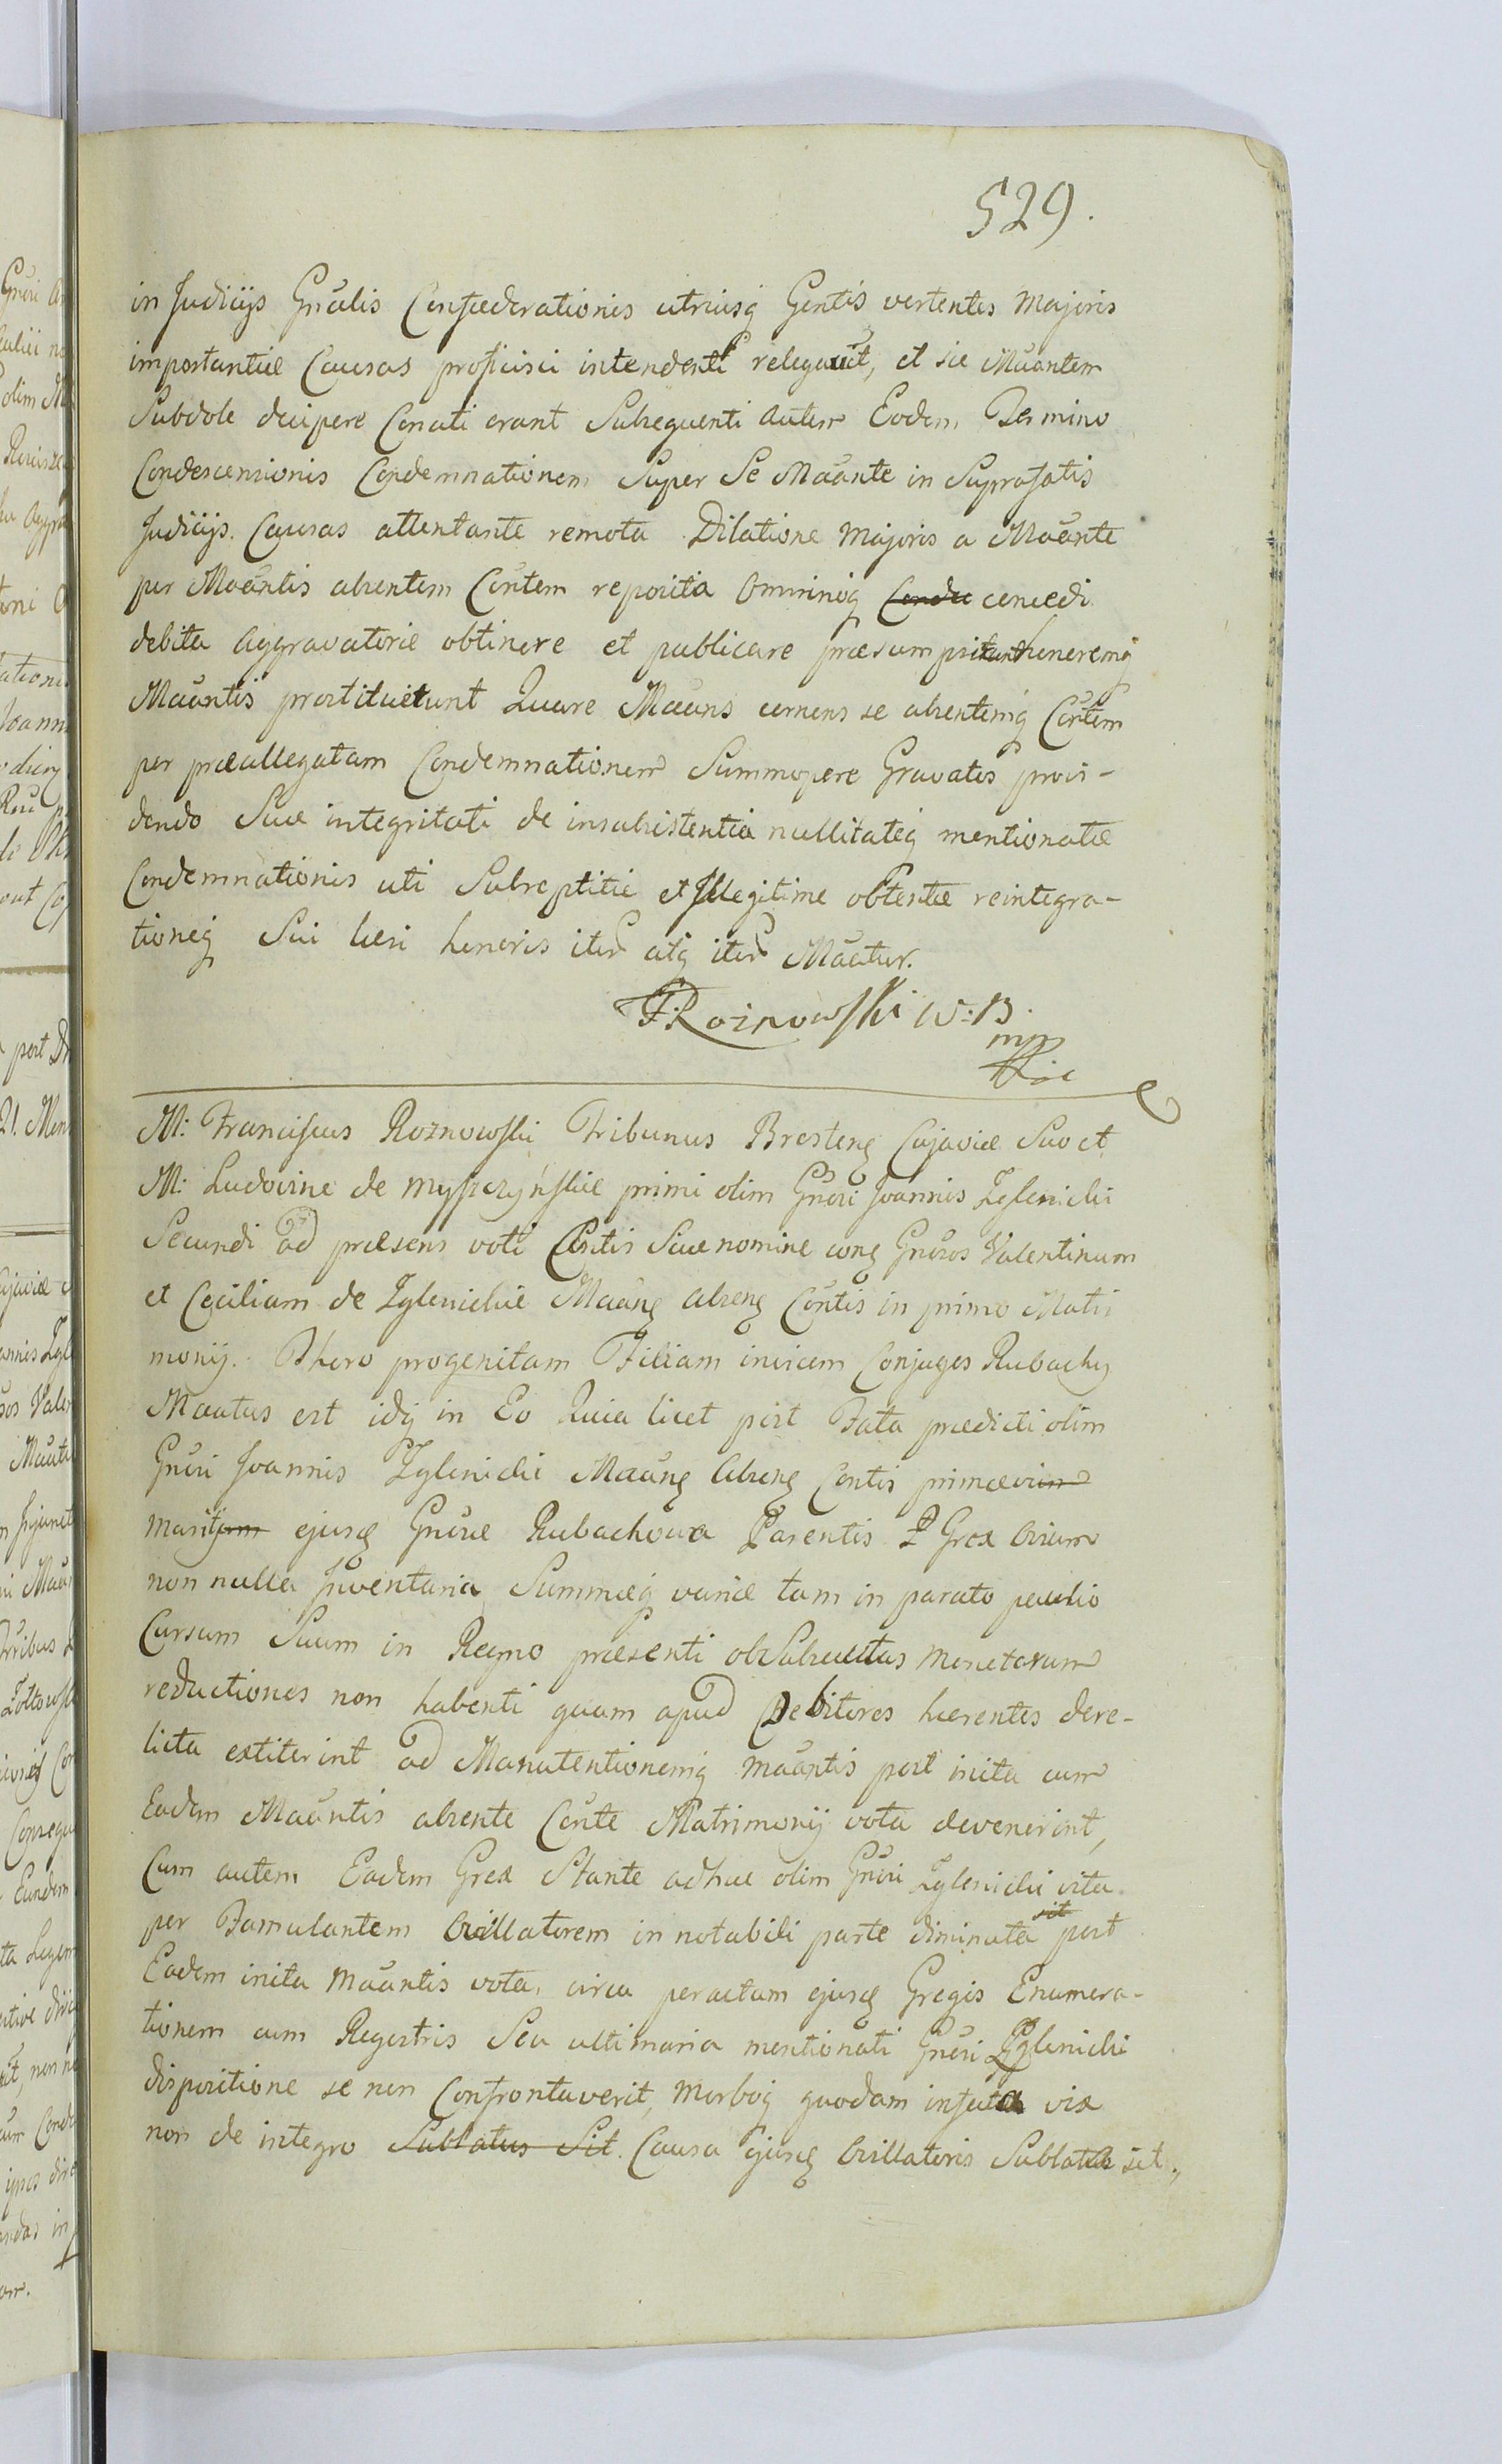 529.
in Judicijs Gnālis Confæderationis utriusq Gentis vertentes Majoris
importantiæ Causas proficisci intendenti relegavit, et sic Māantem
Subdole decipere Conati erant Subsequenti autem Eodem Termino
Condescensionis Condemnationem Super Se Māante in Suprafatis
Judicijs. Causas attentante remota Dilatione Majoris a Māante
per Māantis absentem Cōrtem reposita Omninoq Condu concedi
debita Aggravatoriæ obtinere et publicare præsumpserunt honeremq
Māantis prostituerunt Quare Māans cernens se absentemq Cōrtem
per præallegatam Condemnationem Summopere Gravatos provi-
dendo Suæ integritati de insubsistentia nullitateq mentionatæ
Condemnationis uti Subreptitie et Illegitime obtentæ reintegra-
tioneq Sui læsi honeris iterũ atq iterũ Māatur.
F Roznowski W: B.
mp
M: Franciscus Roznowski Tribunus Bresteñ Cujaviæ Suo et
M: Ludovinæ de Myszczyńskie primi olim Gnōsi Joannis Zglenicki
Secundi ad præsens voti Cōntis Suæ nomine conq Gnōsos Valentinum
et Ceciliam de Zglenickie Māanq absenq Cōrtis in primo Matri
monij. Thoro progenitam Filiam invicem Conjuges Rubachy
Maatus est idq in Eo Quia licet post Fata prædicti olim
Gnōsi Joannis Zglenicki Māanq Absenq Cōrtis primævi
mariti ejusq Gnōsæ Rubachowa Parentis Grex Ovium
non nulla Inventaria Summæq variæ tam in parato peculio
Cursum Suum in Regno præsenti ob Subsecutas Monetarum
reductiones non habenti quam apud Debitores hærentes dere-
licta extiterint ad Manutentionemq māantis post inita cum
Eadem Māantis absente Cōrte Matrimonij vota devenerint,
Cum autem Eadem Grex Stante adhuc olim Gnōsi Zglenicki vita
per Famulantem Ovillatorem in notabili parte diminuta sit post
Eadem inita māantis vota, circa peractam ejusq Gregis Enumera-
tionem cum Regestris Seu ultimaria mentionati Gnōsi Zglenicki
dispositione se non Confrontaverit, Morboq quodam infecta vix
non de integro Sublatus Sit. Causa ejusq Ovillatoris Sublata sit,